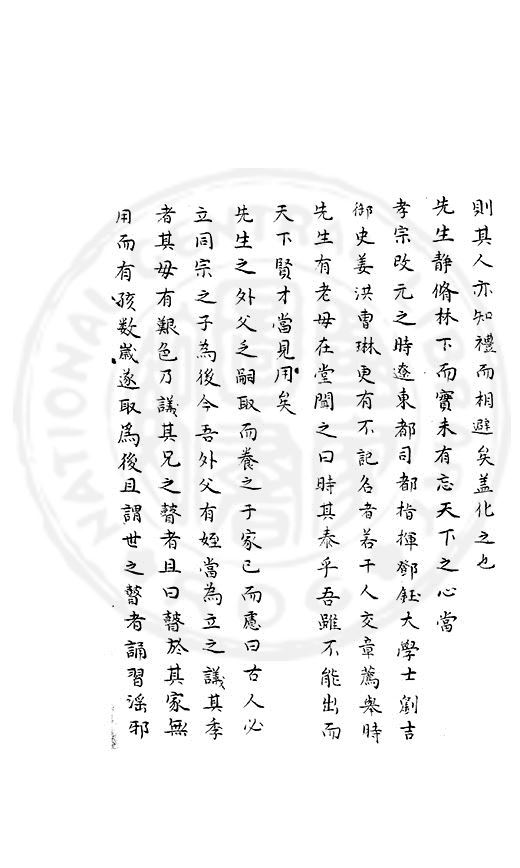 則其人亦知禮而相避矣蓋化之也
先生静脩林下而實未有忘天下之心當
孝宗改元之時遼東都司都指揮鄧鈺大學士劉吉
御史姜洪曹琳更有不記名者若干人交章薦舉時
先生有老母在堂聞之曰時其泰乎吾雖不能出而
天下賢才當見用矣
先生之外父乏嗣取而養之于家已而慮曰古人必
立同宗之子為後今吾外父有姪當為立之議其季
者其毋有艱色乃議其兄之瞽者且曰瞽於其家無
用而有孩數嵗遂取爲後且謂世之瞽者誦習滛邪